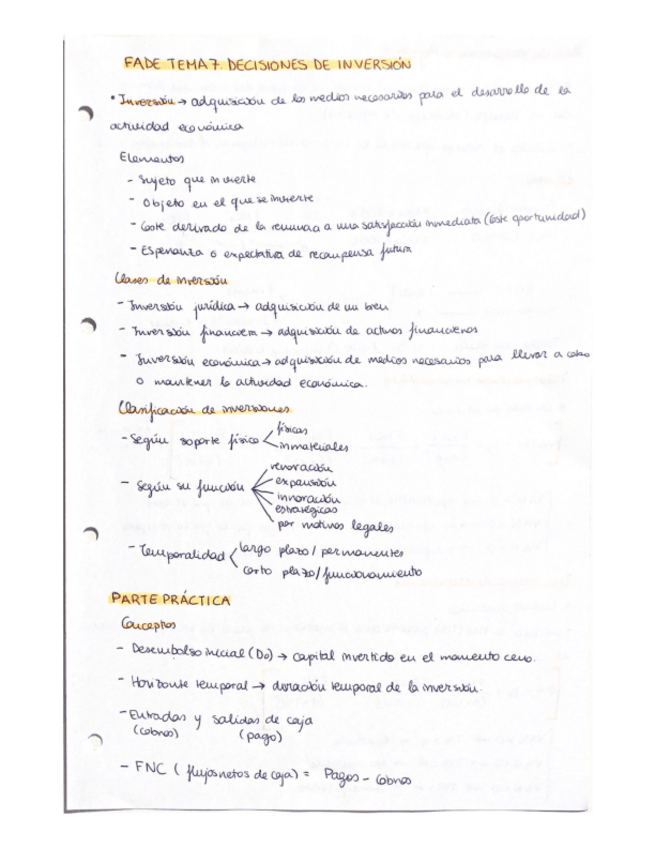 FADE TEMA 7. DECISIONES DE INVERSIÓN
• Inversión → adquisición de los medios necesarios para el desarrollo de la
actividad económica
Elementos
- Sujeto que invierte
- Objeto en el que se invierte
- Coste derivado de la renuncia a una satisfacción inmediata (Coste oportunidad)
- Esperanza o expectativa de recompensa futura
Clases de inversión
- Inversión jurídica → adquisición de un bien
- Inversión financiera → adquisición de activos financieros
- Inversión económica → adquisición de medios necesarios para llevar a cabo
o mantener la actividad económica.
Clasificación de inversiones
- Según soporte físico
físicas
inmateriales
- Según su función
renovación
expansión
innovación
estratégicas
por motivos legales
- Temporalidad
largo plazo / permanentes
corto plazo / funcionamiento
PARTE PRÁCTICA
Conceptos
- Desembolso inicial (Do) → capital invertido en el momento cero.
- Horizonte temporal → duración temporal de la inversión.
- Entradas y salidas de caja
(cobros) (pago)
- FNC ( flujos netos de caja) = Pagos - Cobros